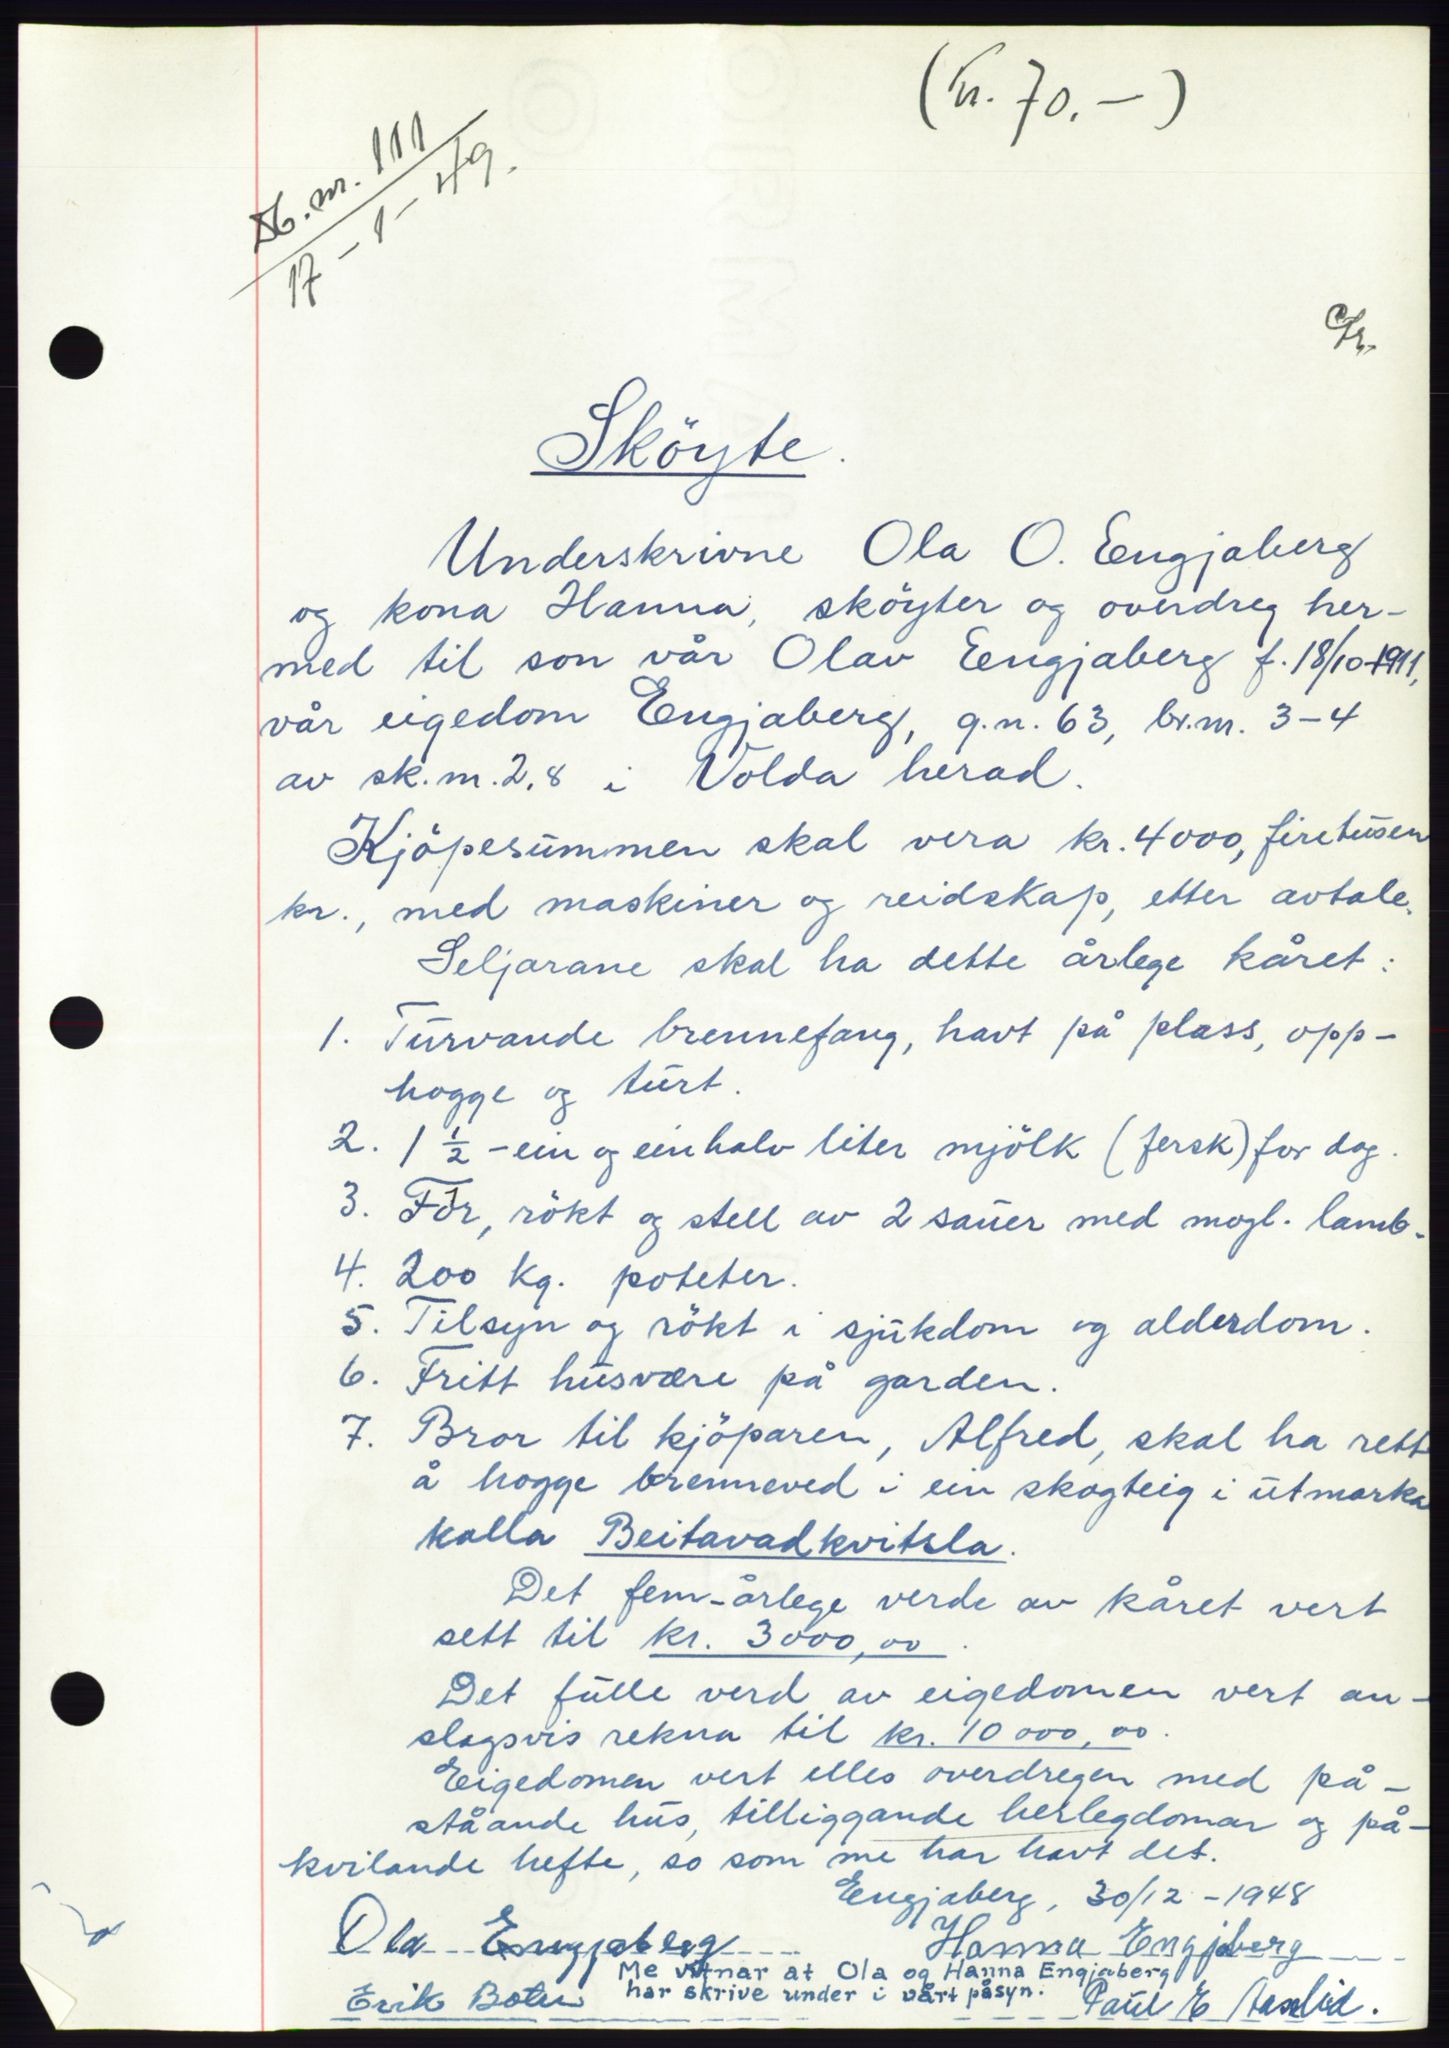 (Kr. 70.-)
Db. nr. 111
17-1-49.
Sköyte.
Underskrivne Ola O. Engjaberg
og kona Hanna, sköyter og overdreg her-
med til son vår Olav Engjaberg f. 18/10-1911,
vår eigedom Engjaberg, g.n. 63, br.nr. 3-4
av sk.m. 2,8 i Volda herad.
Kjöpesummen skal vera kr. 4000, firetusen
kr., med maskiner og reidskap, etter avtale.
Seljarane skal ha dette årlege kåret:
1. Turvande brennefang, havt på plass, opp-
hogge og turt.
2. 1 1/2 - ein og ein halv liter mjölk (fersk) for dag.
3. Fór, rökt og stell av 2 sauer med mogl. lamb.
4. 200 kg. poteter.
5. Tilsyn og rökt i sjukdom og alderdom.
6. Fritt husvære på garden.
7. Bror til kjöparen, Alfred, skal ha rett
å hogge brenneved i ein skogteig i utmarka
kalla Beitavadkvitsla.
Det fem-årlege verde av kåret vert
sett til kr. 3000,00.
Det fulle verd av eigedomen vert an-
slagsvis rekna til kr. 10 000,00.
Eigedomen vert elles overdregen med på-
ståande hus, tilliggande herlegdomar og på-
kvilande hefte, so som me har havt det.
Engjaberg, 30/12-1948
Ola Engjaberg Hanna Engjaberg
Me vitnar at Ola og Hanna Engjaberg
har skrive under i vårt påsyn.
Erik Paul E Aaslid.